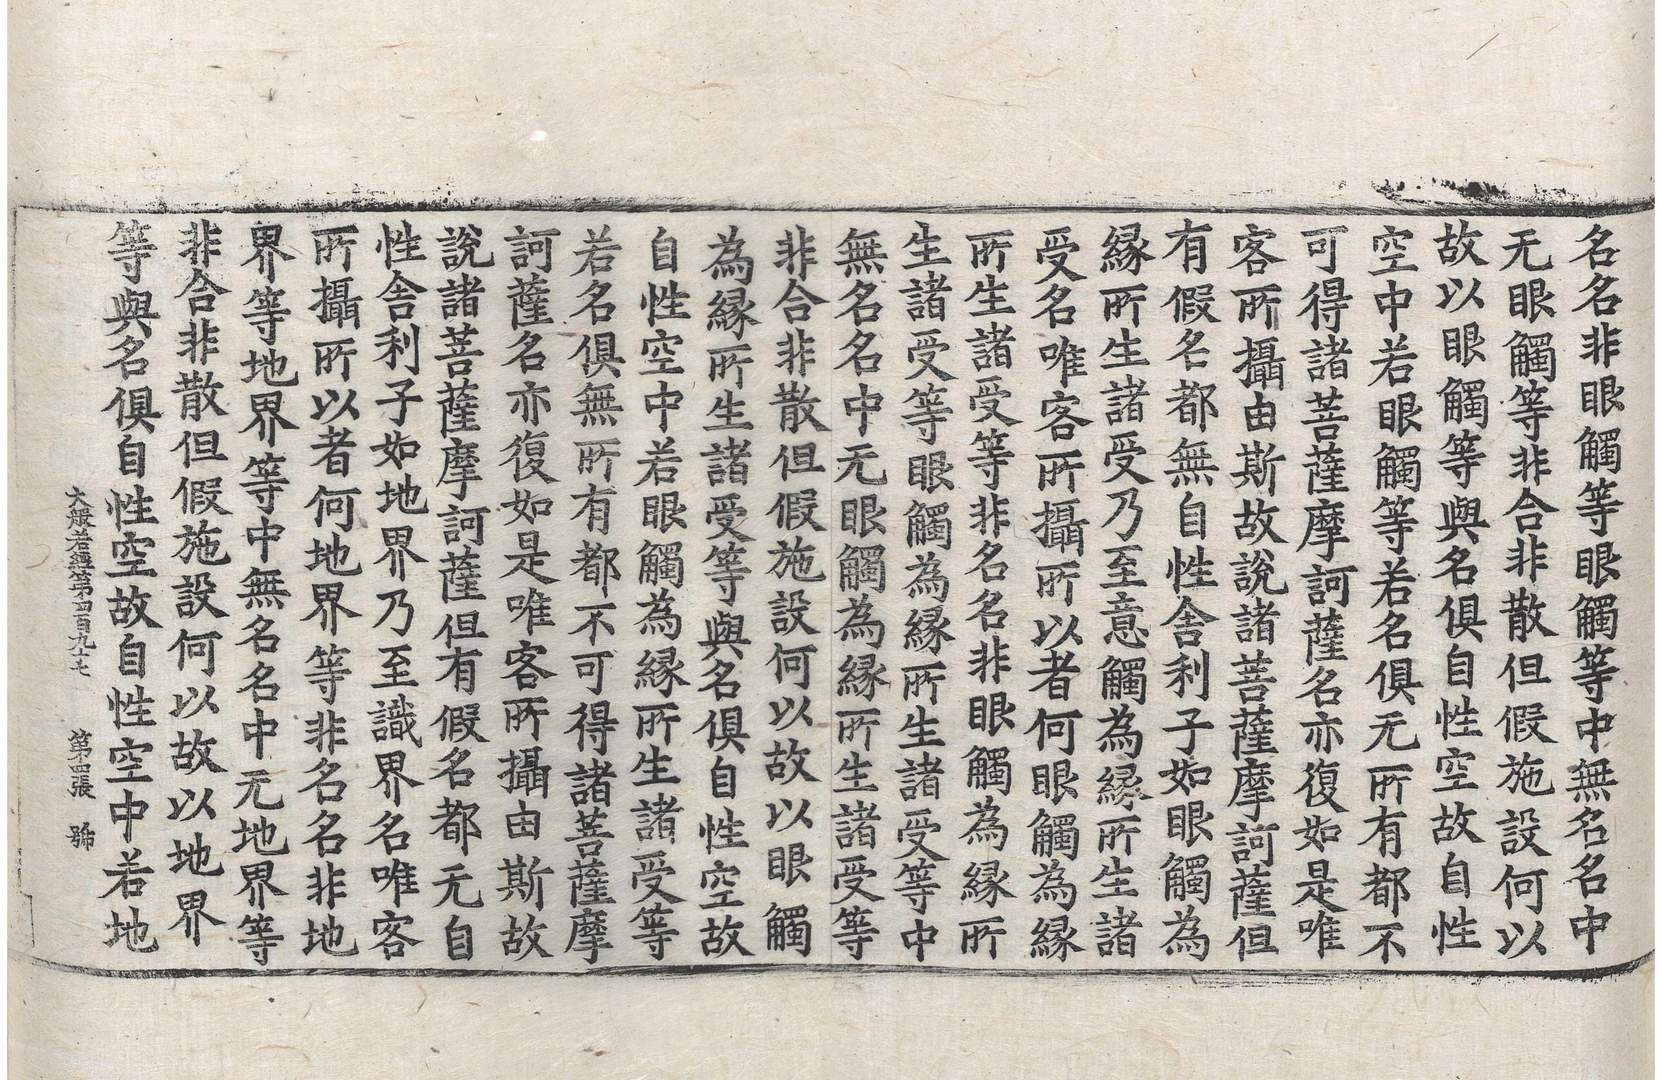 名名非眼觸等眼觸等中無名名中
无眼觸等非合非散但假施設何以
故以眼觸等與名俱自性空故自性
空中若眼觸等若名俱无所有都不
可得諸菩薩摩訶薩名亦復如是唯
客所攝由斯故說諸菩薩摩訶薩但
有假名都無自性舍利子如眼觸為
緣所生諸受乃至意觸為緣所生諸
受名唯客所攝所以者何眼觸為緣
所生諸受等非名名非眼觸為緣所
生諸受等眼觸為緣所生諸受等中
無名名中无眼觸為緣所生諸受等
非合非散但假施設何以故以眼觸
為緣所生諸受等與名俱自性空故
自性空中若眼觸為緣所生諸受等
若名俱無所有都不可得諸菩薩摩
訶薩名亦復如是唯客所攝由斯故
說諸菩薩摩訶薩但有假名都无自
性舍利子如地界乃至識界名唯客
所攝所以者何地界等非名名非地
界等地界等中無名名中无地界等
非合非散但假施設何以故以地界
等與名俱自性空故自性空中若地
大般若經第四百九十七 第四張 號